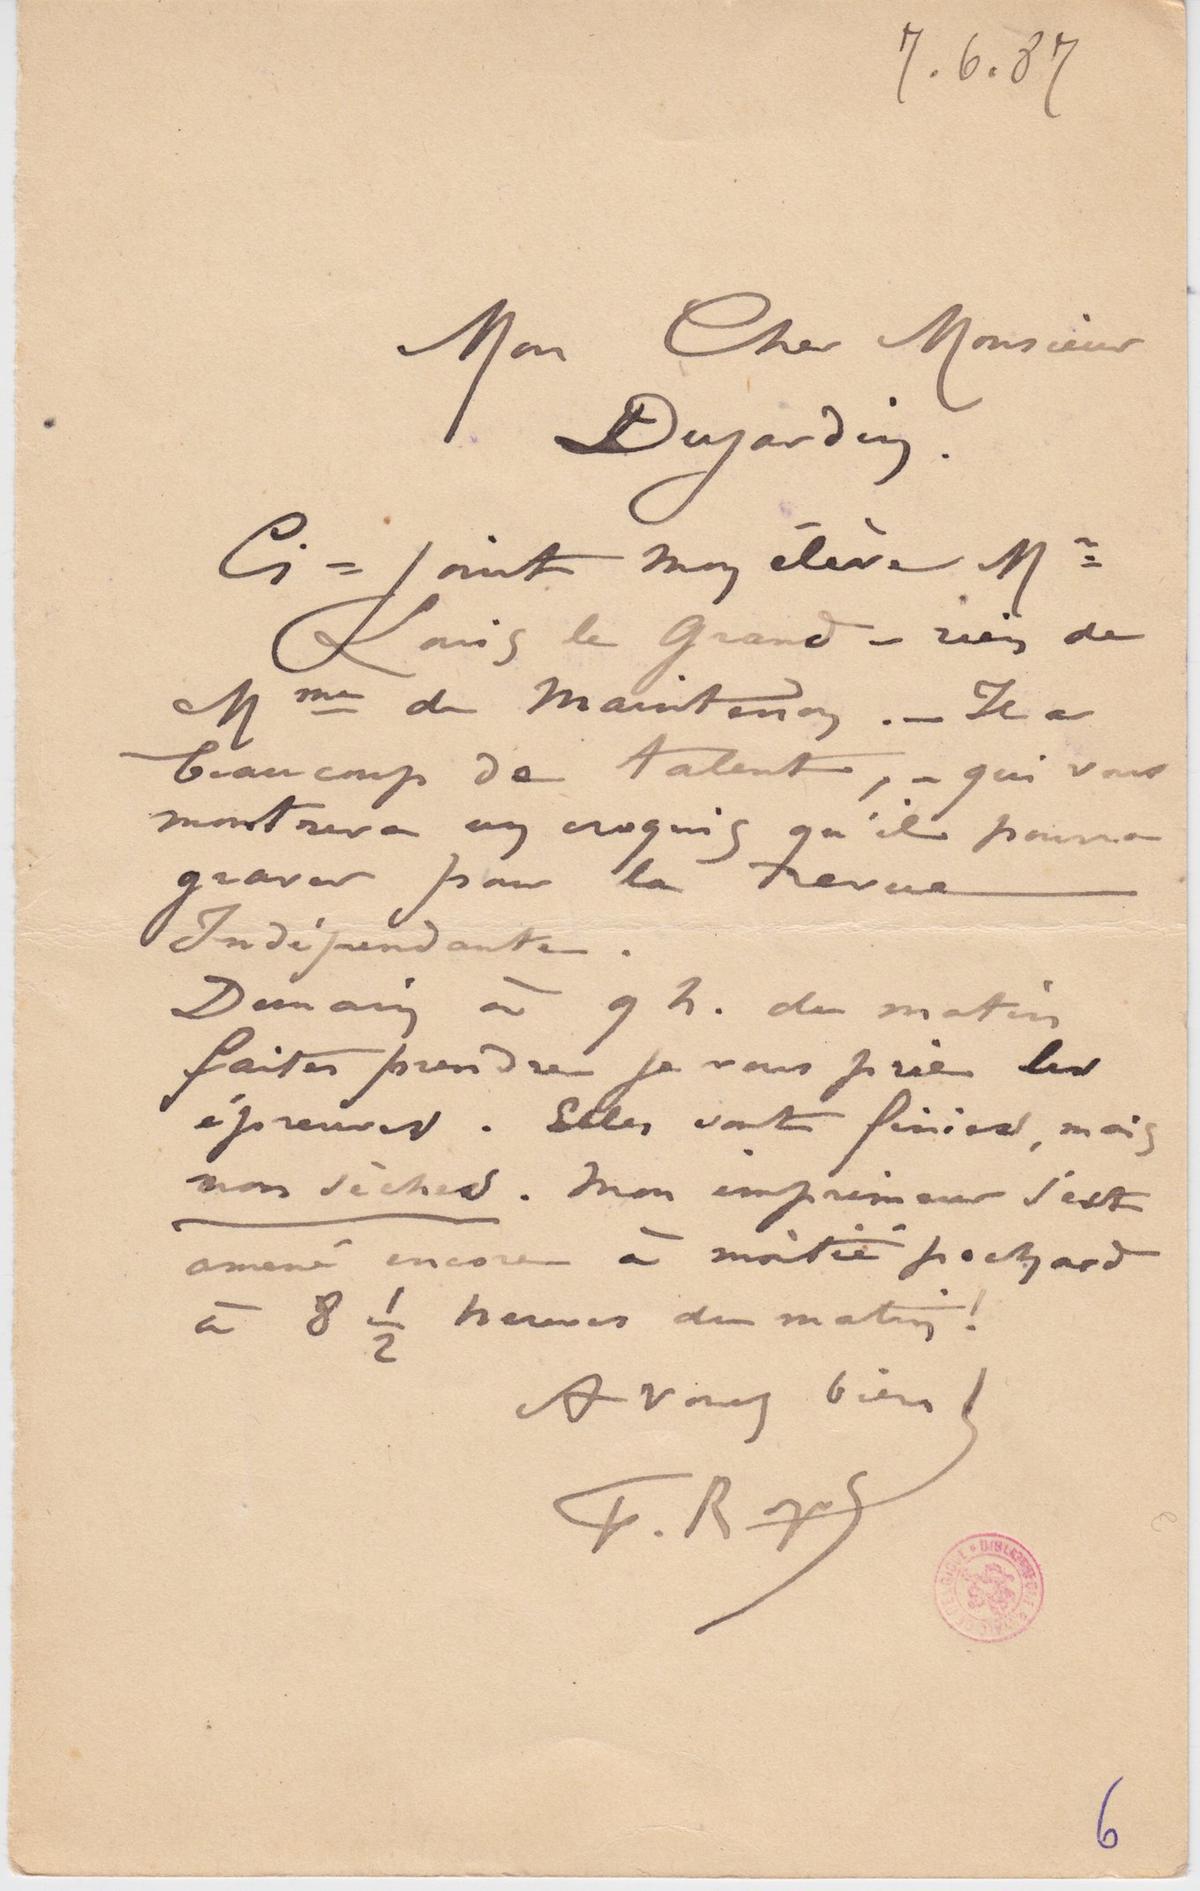 7.6.87
Mon Cher Monsieur
Dujardin.
Ci=joint mon élève Mr
Louis le Grand – rien de
Mme de Maintenon. – Il a
beaucoup de talent, – qui vous
montrera un croquis qu'il pourra
graver pour la Revue
Indépendante.
Demain à 9 h. du matin
faites prendre je vous prie les
épreuves. Elles sont finies, mais
non sèches. Mon imprimeur s'est
amené encore à moitié pochard
à 8 1/2 heures du matin!
A vous bien
F. Rops
6